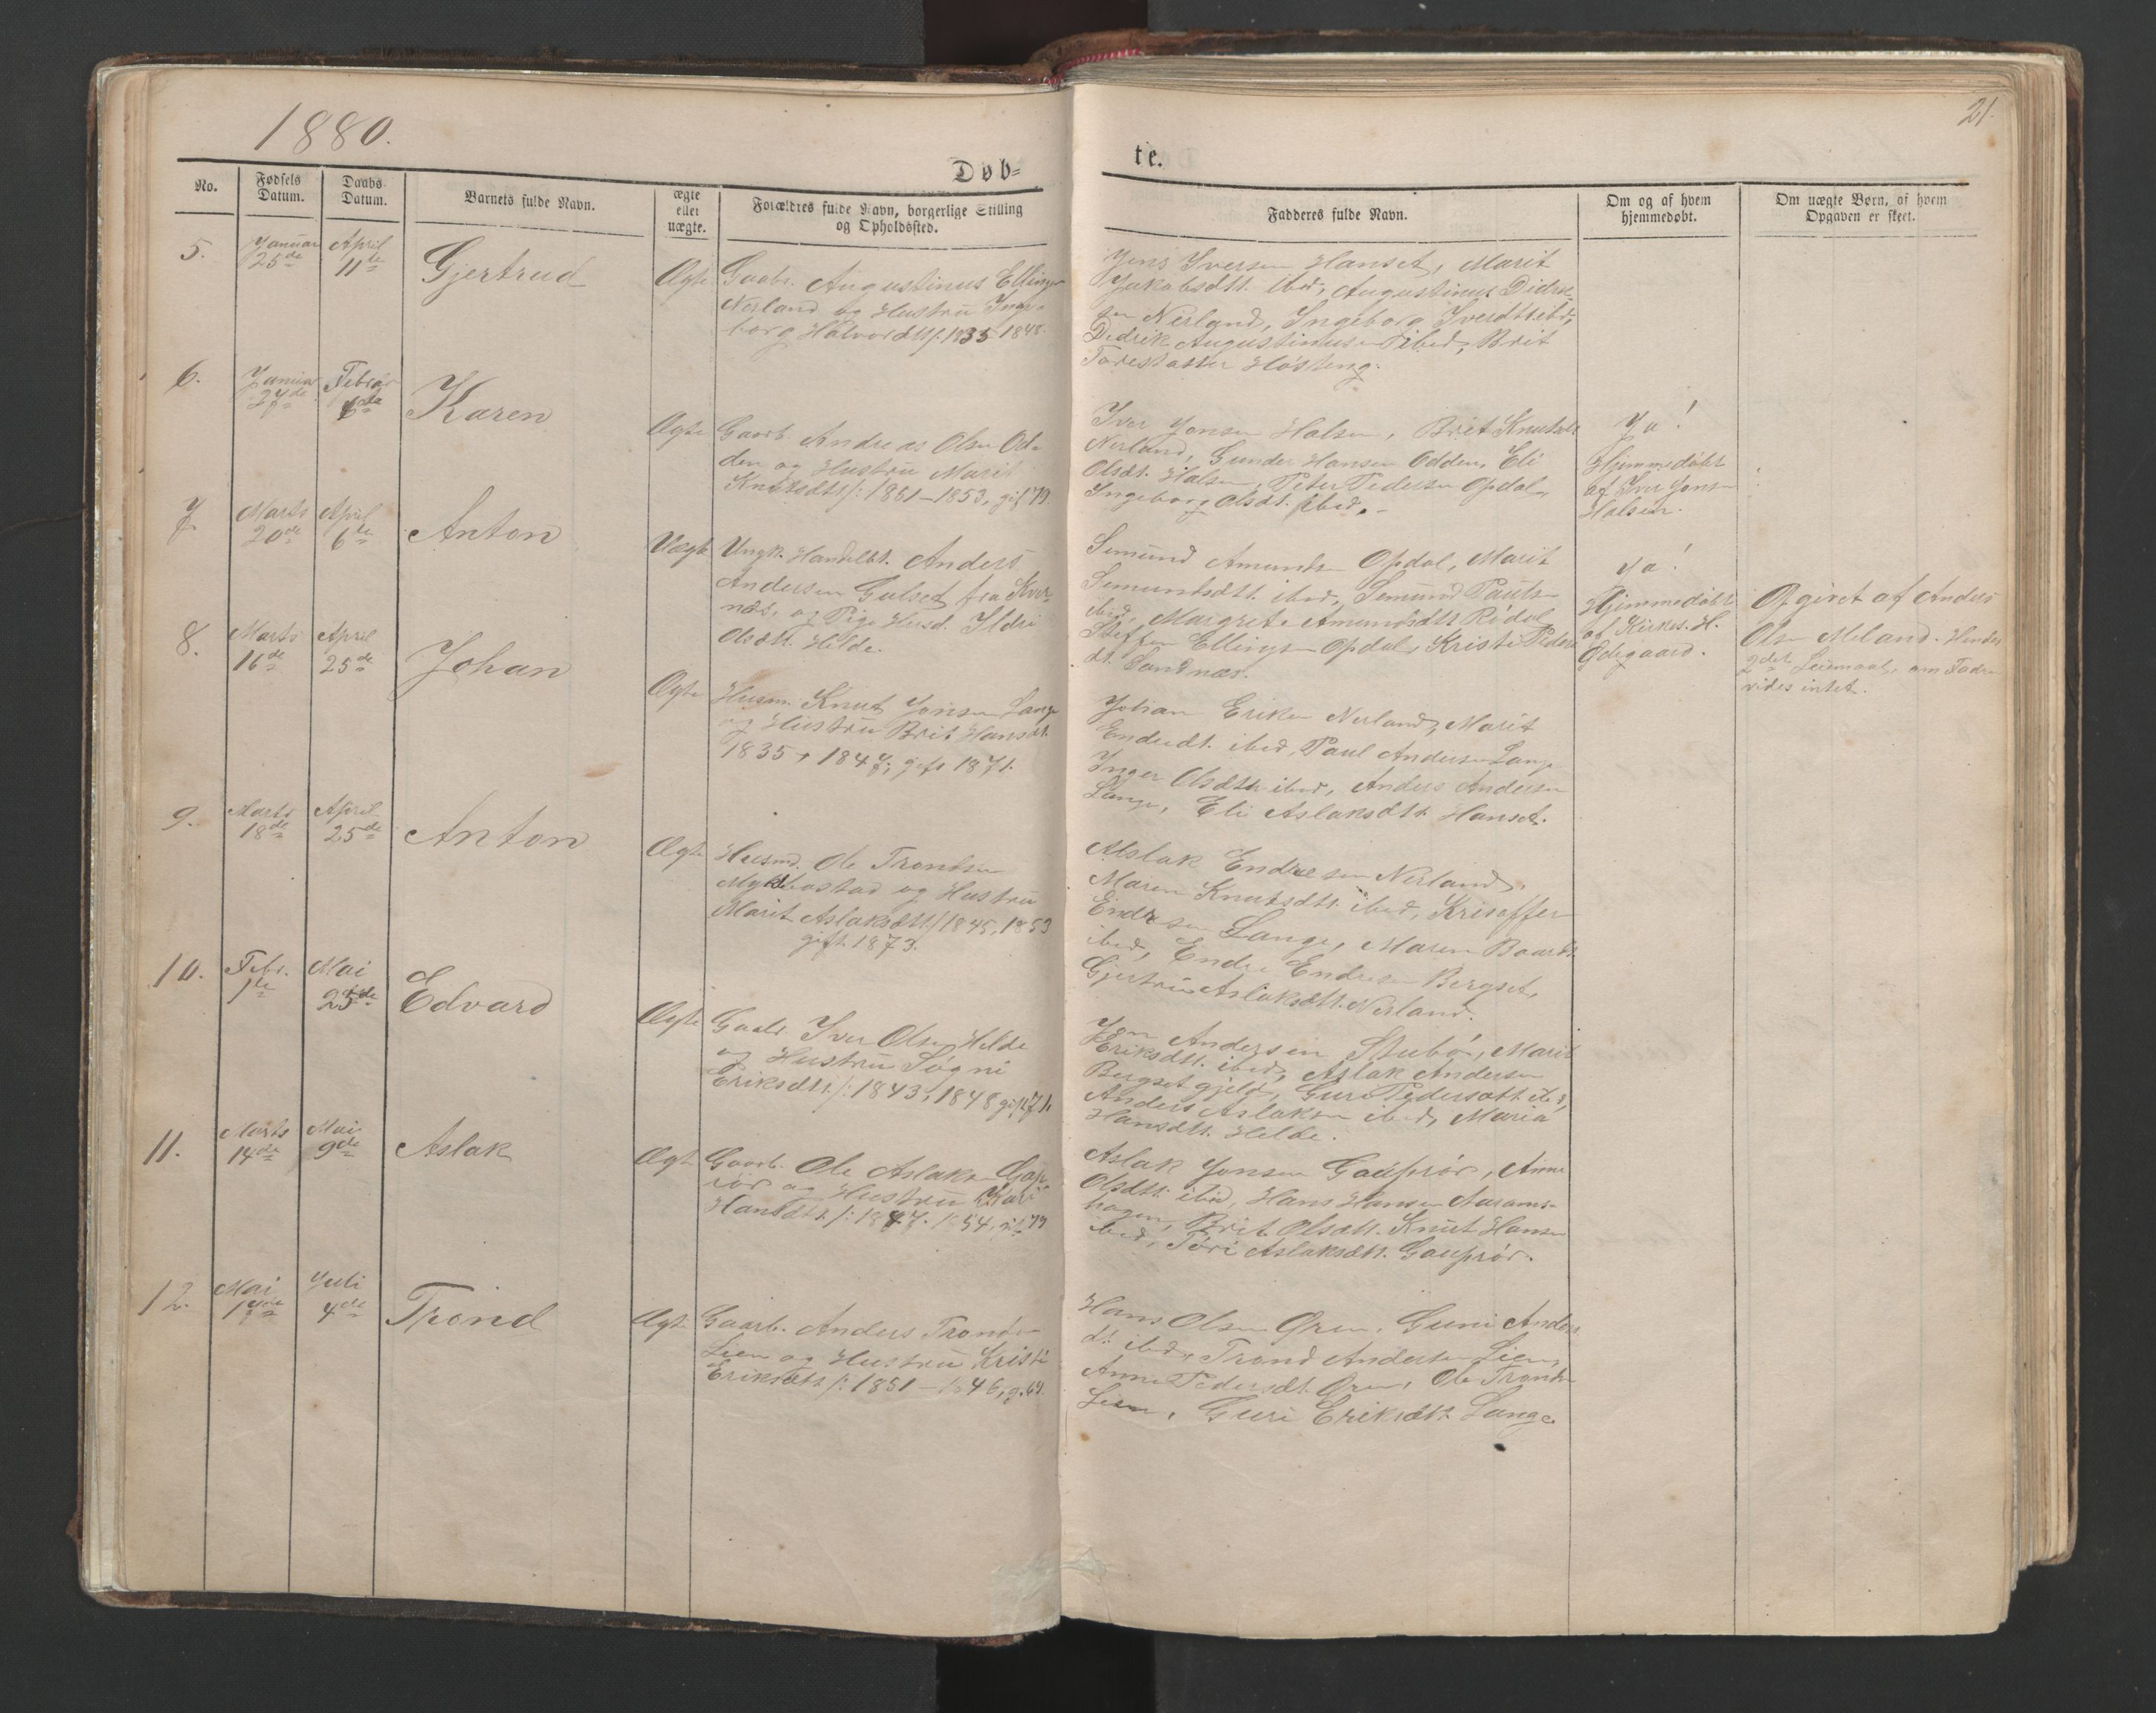 1880.
21.
Døb=
te.
No.
Fødsels Datum.
Daabs Datum.
Barnets fulde Navn.
ægte eller uægte.
Forældres fulde Navn, borgerlige Stilling og Opholdssted.
Fadderes fulde Navn.
Om og af hvem hjemmedøbt.
Om uægte Børn, af hvem Opgaven er skeet.
5.
Januar 25de
April 11te
Gjertrud
Ægte
Gaabr. Augustinus Ellings
Nerland og Hustru Inge-
borg Halvordtt/: 1835 1848
Jens Iversen Hanset, Marit
Jakobsdtt. ibid, Augustinus Didrik
sen Nerland, Ingeborg Iversdtt ibd,
Dedrik Augustinusen ibid, Brit
Toresdatter Høsteng.
6.
Januar 27de
Februar 6te
Karen
Ægte
Gaarb. Andreas Olsen Od-
den og Hustru Marit
Knutsdtt/: 1851–1853, gif 79.
Iver Jonsen Halsen, Brit Knutsdt
Nerland, Gunder Hansen Odden, Eli
Olsdt. Halsen, Peter Pedersen Opdal,
Ingeborg Olsdt. ibid.
Ja!
Hjemmedøbt
af Iver Jonsen
Halsen.
7.
Marts 20de
April 6te
Anton
Uægte
Ungk. Handelbt. Anders
Andersen Gulset fra Kver-
næs, og Pige Husd. Ildri
Olsdtt. Hilde.
Semund Amundsen Opdal, Marit
Semundsdtt. ibid, Semund Pauls-
ibid, Margrete Amundsdtt Rødal
Steffen Ellingsen Opdal, Kristi Peders
dt. Sandnæs.
Ja!
Hjemmedøbt
af Kirkes. H.
Ødegaard.
Opgivet af Anders
Olsen Meland. Hendes
2det Leiemaal, om Fadr
vides intet.
8.
Marts 16de
April 25de
Johan
Ægte
Husm. Knut Jonsen Lange
og Hustru Brit Hansdt.
1835, 1847, gift 1871.
Johan Eriksen Nerland, Marit
Endredt. ibid, Paul Andersen Lange
Inger Olsdtt ibid, Anders Andersen
Lange, Eli Aslaksdtt. Hanset.
9.
Marts 18de
April 25de
Anton
Ægte
Husmd. Ole Trondsen
Myklebostad og Hustru
Marit Aslaksdtt/ 1845, 1853
gift 1873.
Aslak Endresen Nerland,
Maren Knutsdtt. ibid, Kristoffer
Endresen Lange, Maren Baardt.
ibid, Endre Endresen Bergset,
Gjertru Aslaksdtt. Nerland.
10.
Febr. 1te
Mai 25de
Edvard
Ægte
Gaabr. Iver Olsen Helde
og Hustru Søgni
Eriksdtt. /: 1843, 1848 gift 71.
Jon Andersen Stubø, Marit
Eriksdtt. ibid, Aslak Andersen
Bergsetgjeld, Guri Pedersdtt ibd,
Anders Aslaksen ibid, Maria
Hansdtt. Helde.
11.
Marts 14de
Mai 9de
Aslak
Ægte
Gaarb. Ole Aslaksen Gaup-
rør og Hustru Kari
Hansdtt. /: 1847. 1854, gif 79
Aslak Jonsen Gauprør, Anne
Olsdtt. ibid, Hans Hansen Aarams-
hagen, Brit Olsdtt. Knut Hansen
ibid, Tøri Aslaksdtt. Gauprør.
12.
Mai 17de
Juli 4de
Trond
Ægte
Gaarb. Anders Tronds-
Lien og Hustru Kristi
Eriksdtt. /: 1851–1846, g. 69.
Hans Olsen Øren, Guni Anders
dt. ibid, Trond Andersen Lien,
Anne Pedersdt. Øren, Ole Tronds
Lien, Guri Eriksdtt. Lange